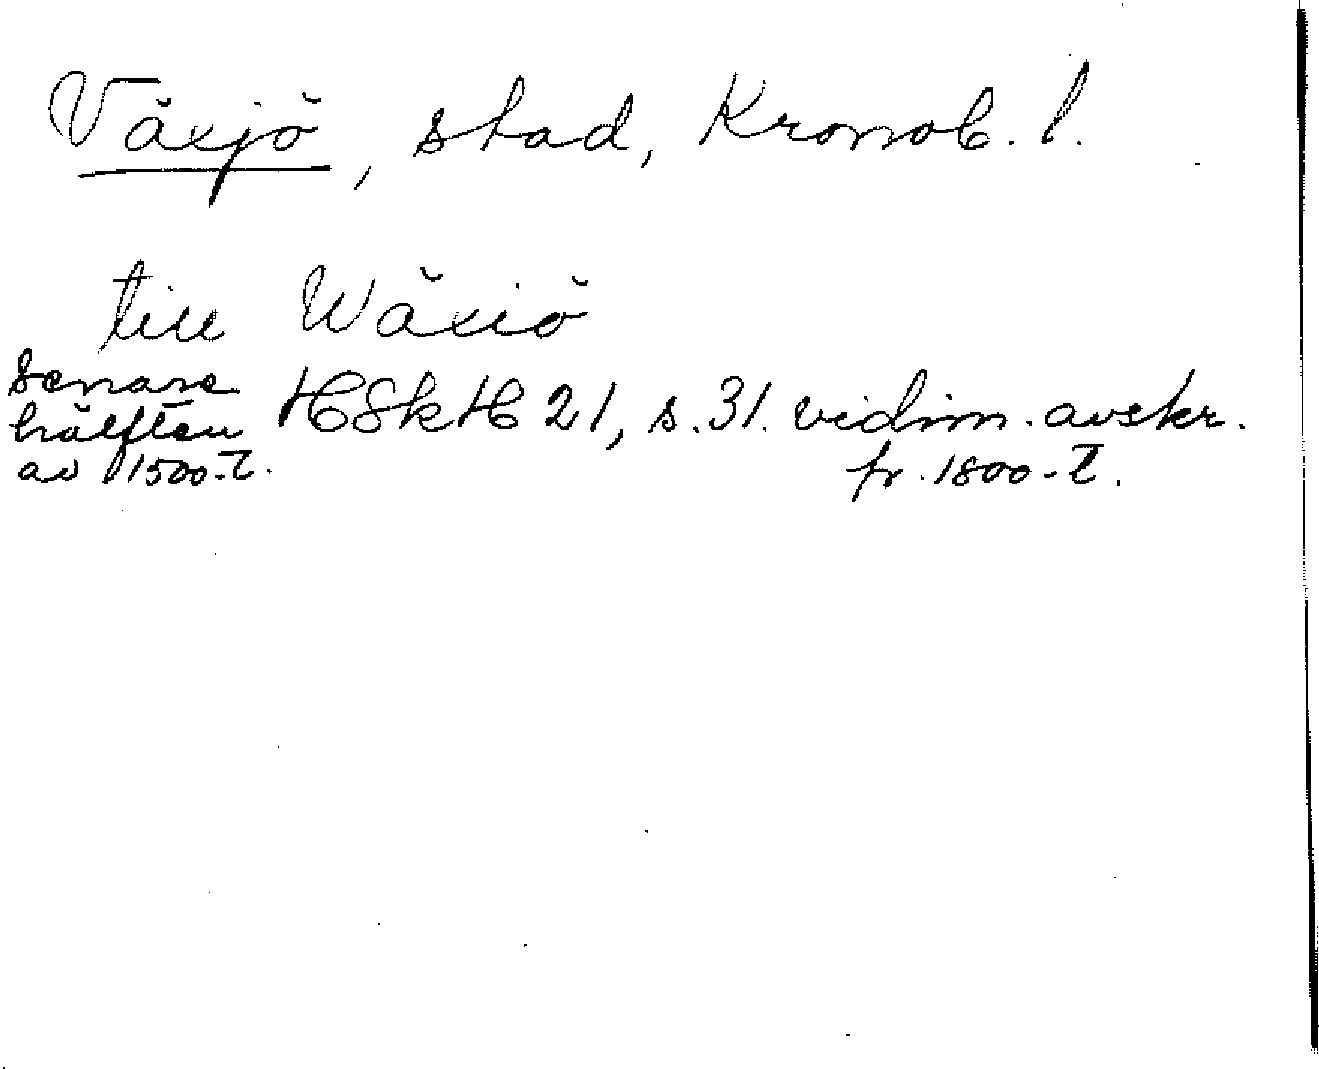 Växjö, stad, Kronob. l.
till Wäxiö
senare
hälften HSkH 21, s. 31. vidim. avskr.
av 1500-t. fr. 1800-t.